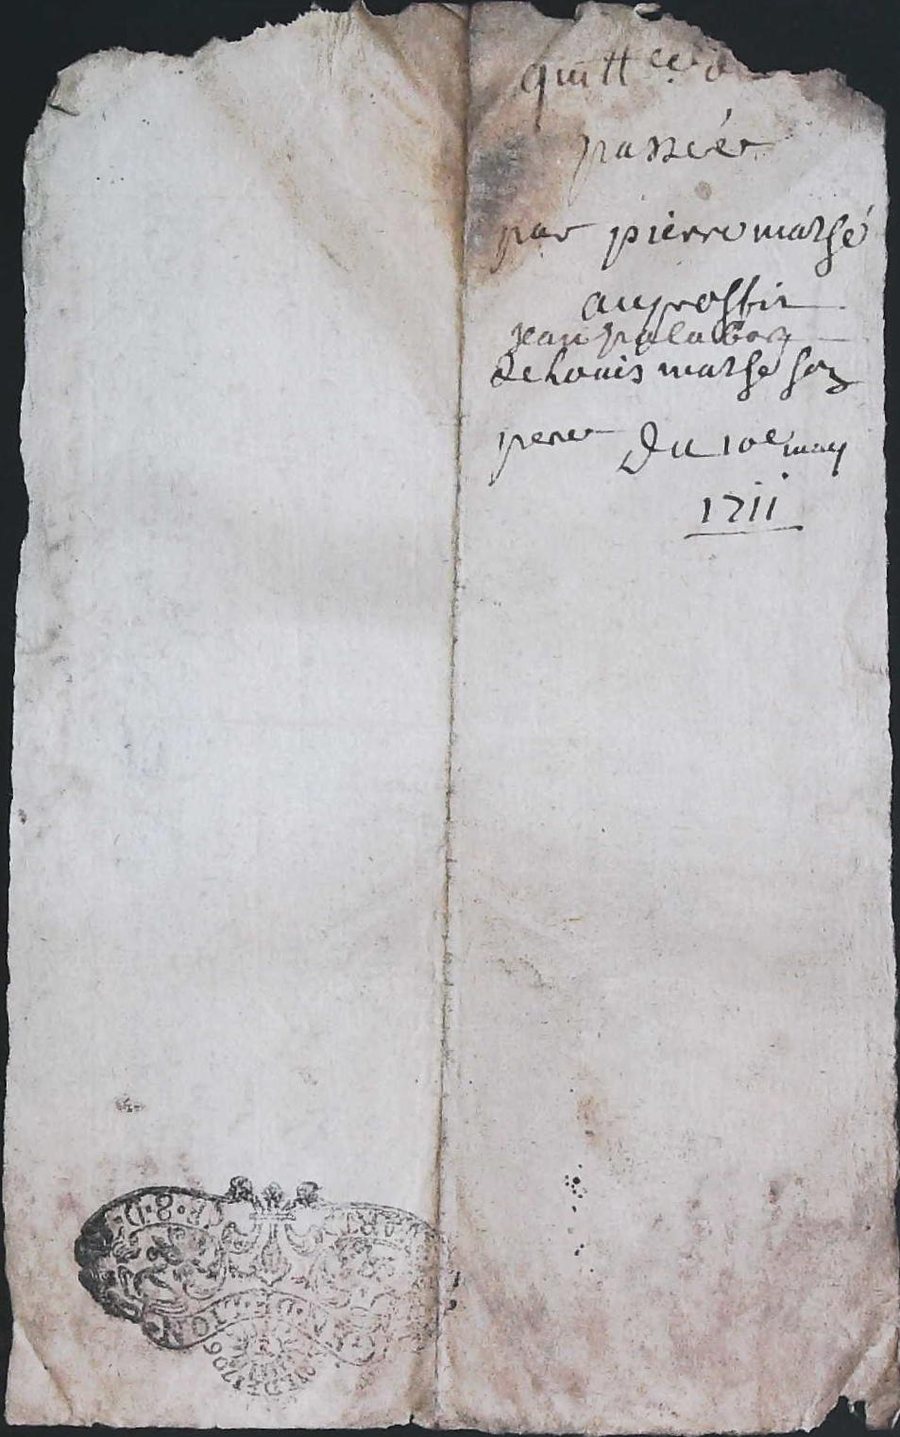 quitt ce
passée
par pierre marsé
au proffit
Jean
de Louis marsé son
pere Du 10e may
1711